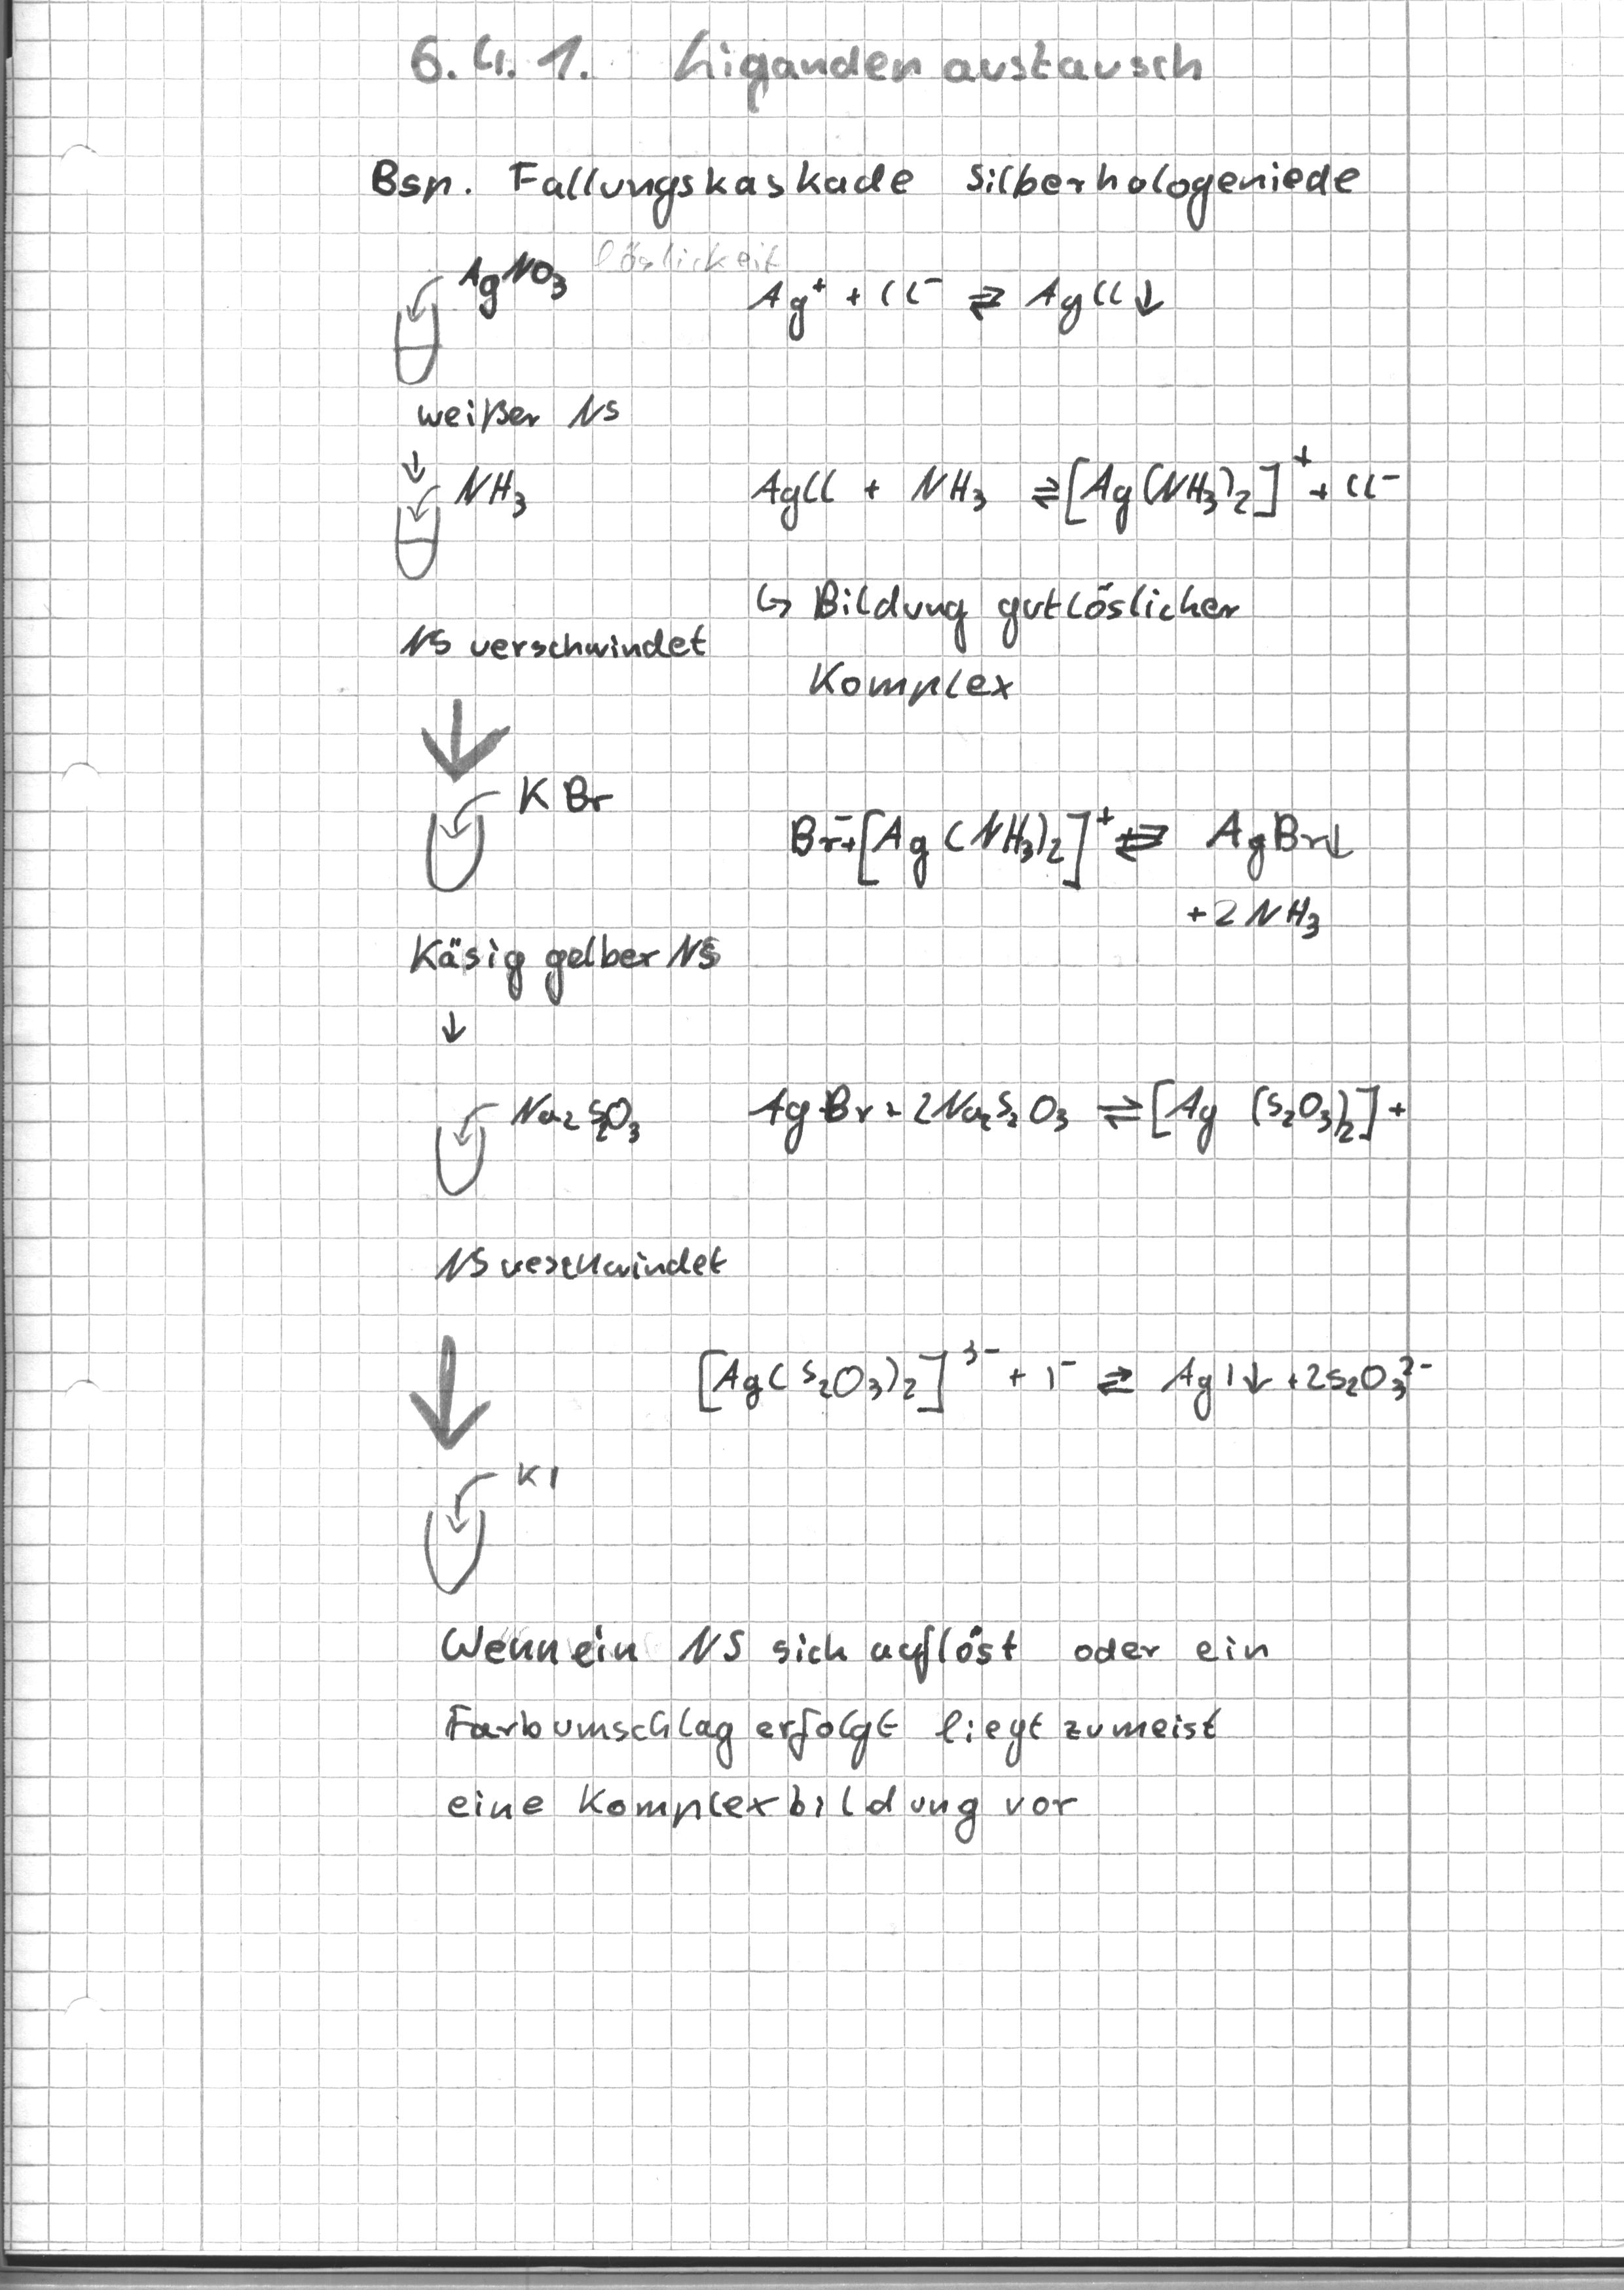 6.4.1. Ligandenaustausch
Bsp. Fallungskaskade Silberhologeniede
löslickeit
AgNO₃
Ag⁺ + Cl⁻ ⇌ AgCl↓
weißer NS
↓
NH₃
AgCl + NH₃ ⇌ [Ag(NH₃)₂]⁺ + Cl⁻
↳ Bildung gutlöslicher
NS verschwindet
Komplex
KBr
Br⁻+[Ag(NH₃)₂]⁺ ⇌ AgBr↓
+2NH₃
Käsig gelber NS
↓
Na₂S₂O₃
AgBr + 2Na₂S₂O₃ ⇌ [Ag (S₂O₃)₂] +
NS veschwindet
[Ag(S₂O₃)₂]³⁻ + I⁻ ⇌ AgI↓ + 2S₂O₃²⁻
KI
Wenn ein NS sich auflöst oder ein
Farbumschlag erfolgt liegt zumeist
eine Komplexbildung vor